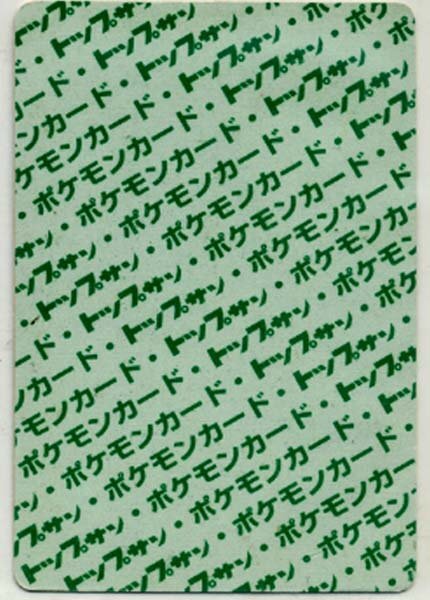 トップサン・ポ
ード・トップサン・ポケ
ンカード・トップサン・ポ
ケモンカード・トップサン・
・ポケモンカード・トップサン
ン・ポケモンカード・トップサン
プサン・ポケモンカード・ト
トップサン・ポケモンカード
・トップサン・ポケモンカード
ード・トップサン・ポケモン
ンカード・トップサン・ポケ
モンカード・トップサン・
ポケモンカード・トップサン
・ポケモンカード・トップサン
サン・ポケモンカード・ト
ップサン・ポケモンカード・
トップサン・ポケモンカード
トップサン・ポケモン
トップサン・ポケ